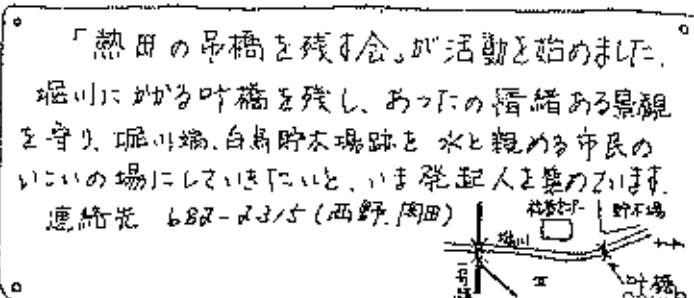 「熱田の吊橋を残す会」が活動を始めました。
堀川にかかる叶橋を残し、あつたの情緒ある景観
を守り、堀川端、白鳥貯木場跡を水と親める市民の
いこいの場にしていきたいと、いま発起人を集めています。
連絡先 682-2315(西野、岡田)
貯木場
堀川
一号線
叶橋